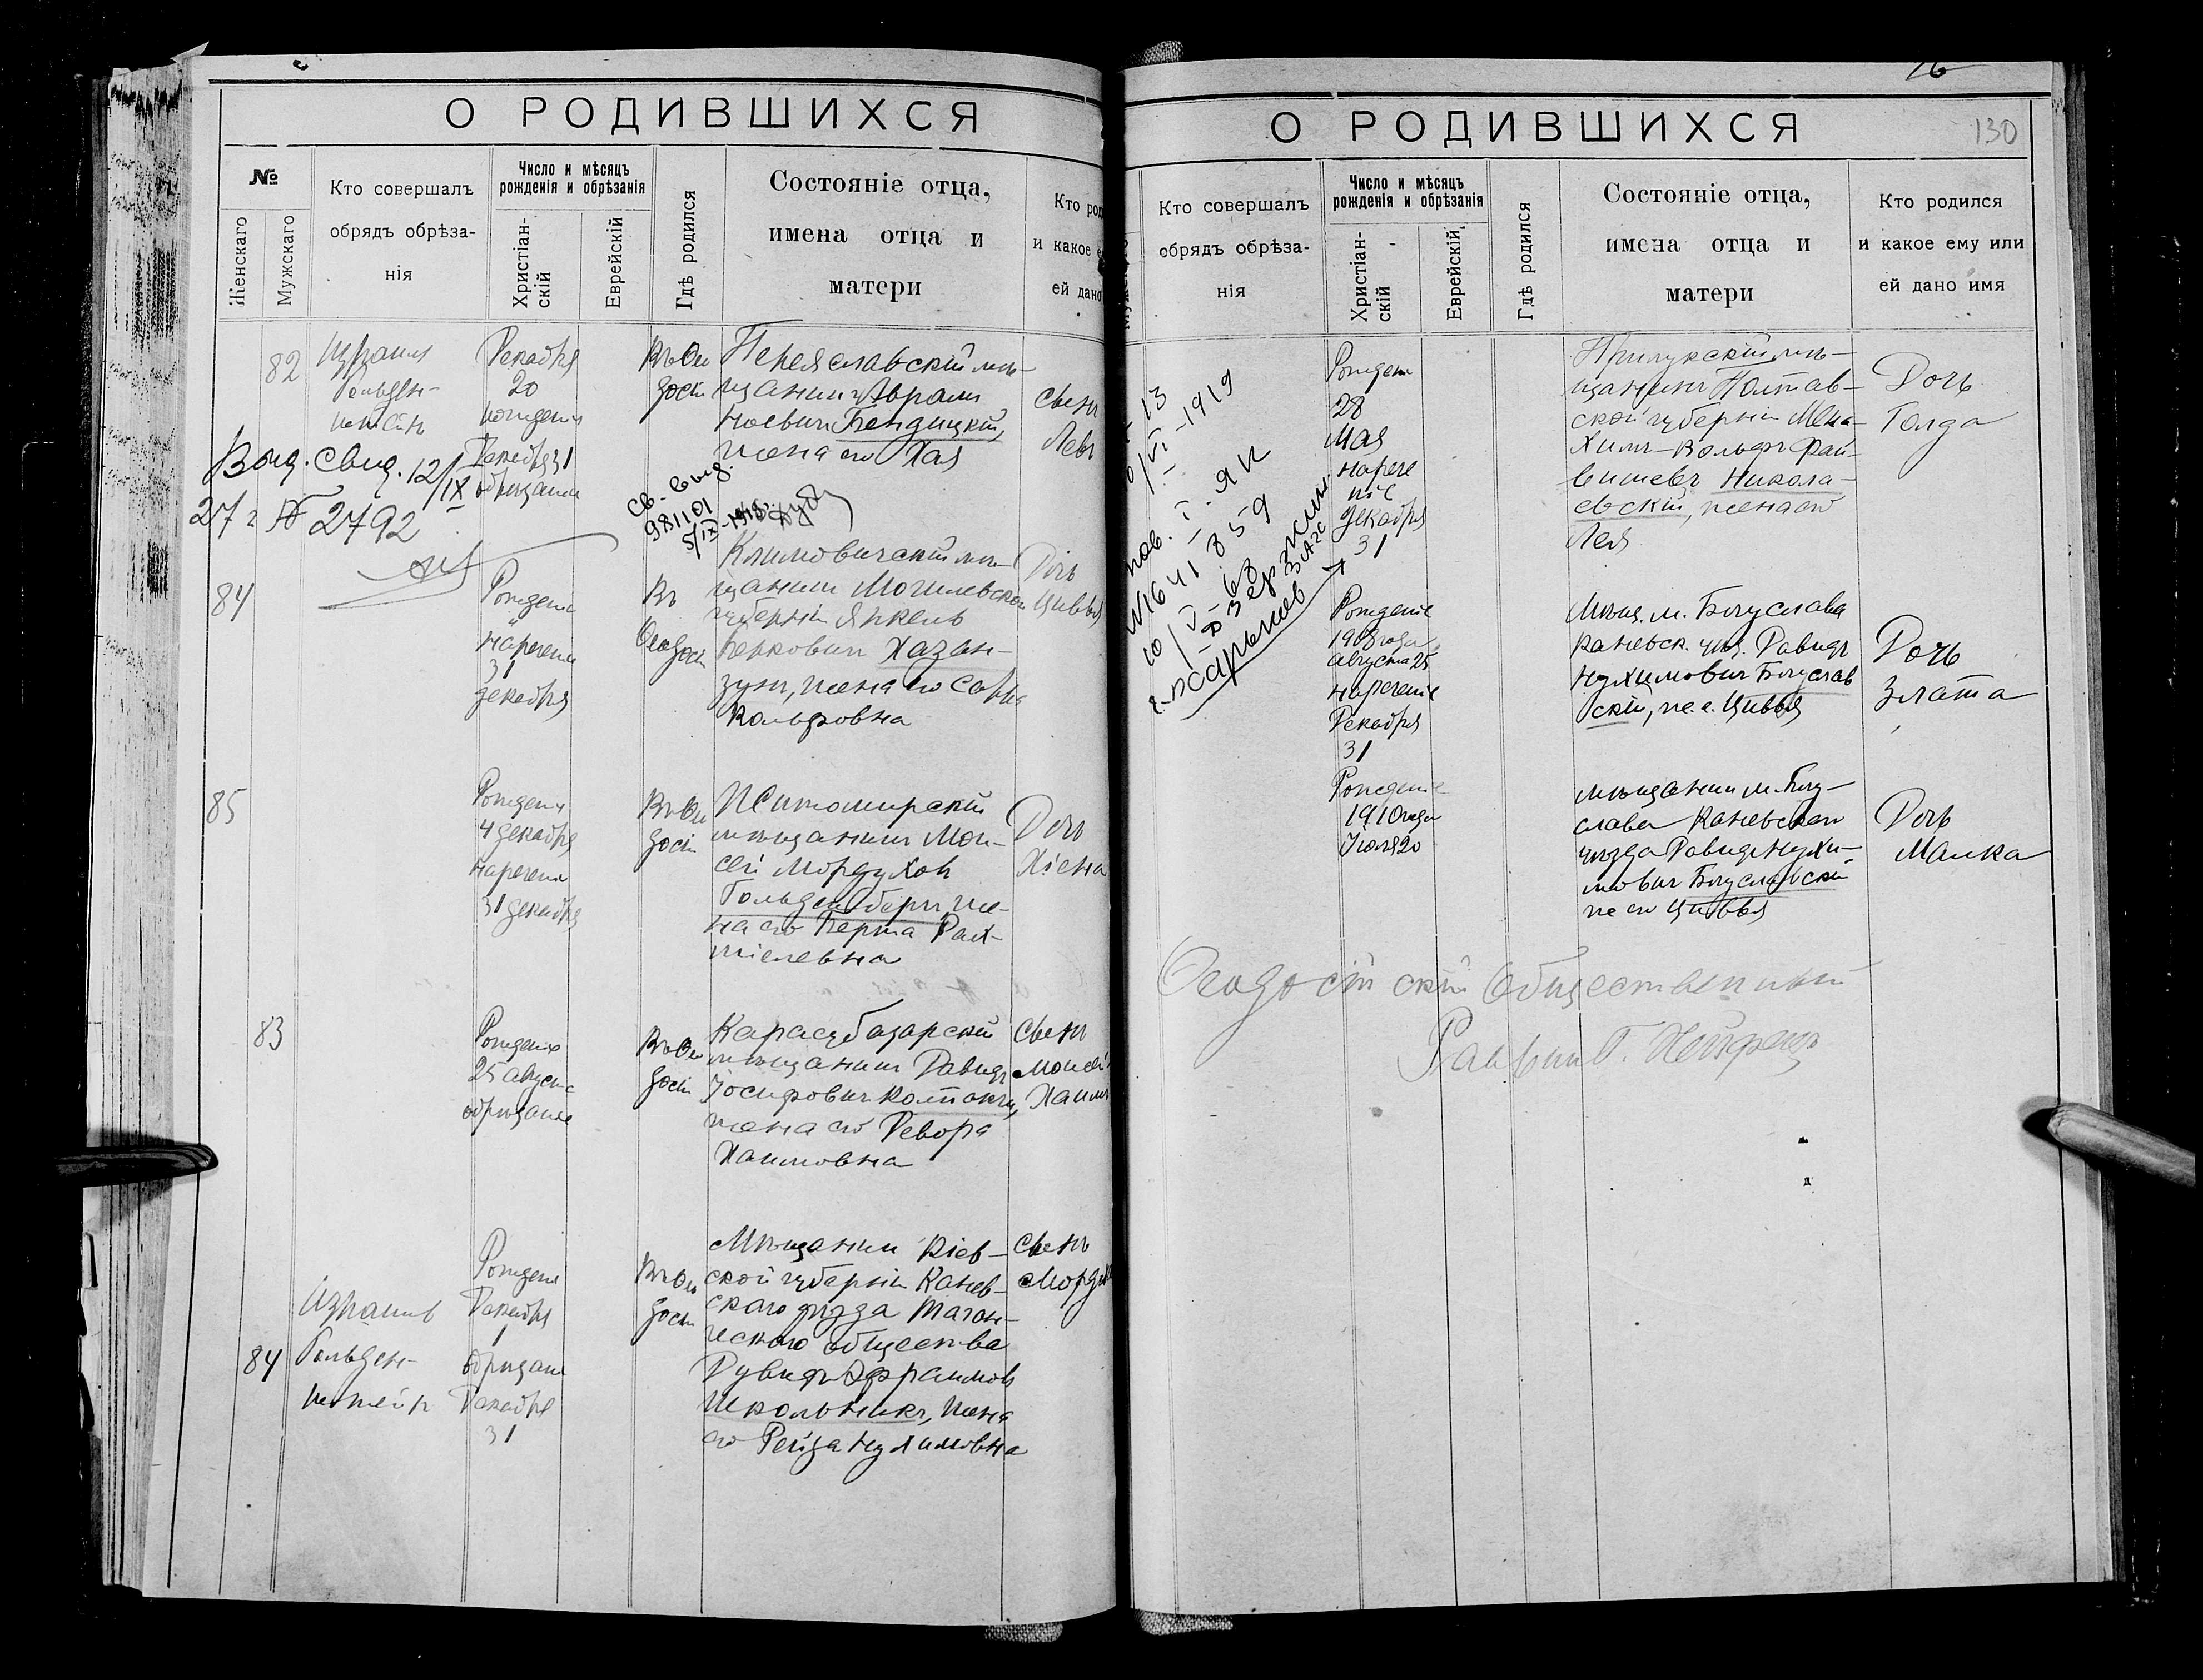 О РОДИВШИХСЯ
№
Женскаго
Мужскаго
Кто совершалъ
обрядъ обрѣза-
нія
Число и мѣсяцъ
рожденія и обрѣзанія
Христіан-
скій
Еврейскій
Гдѣ родился
Состояніе отца,
имена отца и
матери
Кто род
и какое е
ей дано
82
Израиль
Гольден-
штейнъ
Декабря
20
рожденія
Декабря 31
обрѣзанія
Въ Ѳео
досіи
Переяславскій мѣ-
щанинъ Абрамъ
Ноевичъ Бендицкій,
жена его Хая
Сынъ
Левъ
Выд. свид. 12/IX
27 г № 2792
Св. выд.
981101
5/IX-1948г.
84
Рожденіе
и
нареченіе
31
декабря
Въ
Ѳеодосіи
Климовичскій мѣ-
щанинъ Могилевской
губерніи Янкель
Берковичъ Хазан-
зунъ, жена его Сарра
Вольфовна
Дочь
Цивья
85
Рожденія
4 декабря
нареченія
31 декабря
Въ Ѳео
досіи
Житомирскій
мѣщанинъ Мои-
сей Мордухов
Гольденбергъ же-
на его Берта Рах-
міелевна
Дочь
Хіена
83
Рожденіе
25 августа
обрѣзаніе
Въ Ѳео
досіи
Карасубазарскій
мѣщанинъ Давидъ
Іосифовичъ Колпакчи,
жена его Девора
Хаимовна
Сынъ
Моисей
Хаимъ
84
Израиль
Гольден-
штейнъ
Рожденіе
Декабря
1
обрѣзаніе
Декабря
31
Въ Ѳео
досіи
Мѣщанинъ Кіев-
ской губерніи Канев-
скаго уѣзда Таган-
ческаго общества
Дувидъ Эфраимов
Школьникъ, жена
его Рейза Нухимовна
Сынъ
Мордух
О РОДИВШИХСЯ
130
Мужскаго
Кто совершалъ
обрядъ обрѣза-
нія
Число и мѣсяцъ
рожденія и обрѣзанія
Христіан-
скій
Еврейскій
Гдѣ родился
Состояніе отца,
имена отца и
матери
Кто родился
и какое ему или
ей дано имя
13
VI-1919
пов. I-ЯК
N1641859
10/V-68
Дзержин.
ЗАГС
г. Харьков
Рожден
28
Мая
нарече
ніе
декабря
31
Прилукскій мѣ-
щанинъ Полтав-
ской губерніи Мена-
химъ-Вольфъ Фай-
вишевъ Никола-
евскій, жена его
Лея
Дочь
Голда
Рожденіе
1908 года
августа 25
нареченіе
Декабря
31
Мѣщ. м. Богуслава
Каневск. уѣз. Давидъ
Нухимовичъ Богуслав
скій, ж. е. Цивья
Дочь
Злата
Рожденіе
1910 года
Іюля 20
мѣщанинъ м. Богу-
слава Каневскаго
уѣзда Давидъ Нухи-
мовичъ Богуславскій
ж его Цивья
Дочь
Малка
Ѳеодосійскій Общественный
Раввинъ Г.